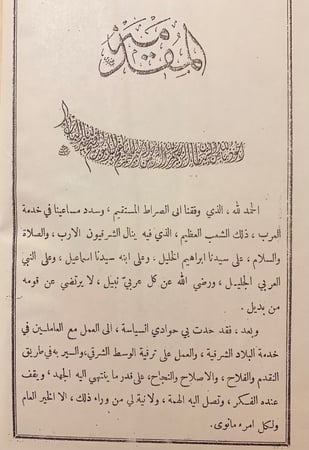 المقدمة
الحمد لله ، الذي وفقنا الى الصراط المستقيم ، وسدد مساعينا في خدمة
العرب ، ذلك الشعب العظيم ، الذي فيه ينال الشرقيون الارب ، والصلاة
والسلام ، على سيدنا ابراهيم الخليل . وعلى ابنه سيدنا اسماعيل ، وعلى النبي
العربي الجليل ، ورضي الله عن كل عربيّ نبيل ، لا يرتضي عن قومه
من بديل .
وبعد ، فقد حدت بي حوادي السياسة ، الى العمل مع العاملين في
خدمة البلاد الشرقية ، والعمل على ترقية الوسط الشرقي ، والسير به في طريق
التقدم والفلاح ، والاصلاح والنجاح ، على قدر ما ينتهي اليه الجهد ، ويقف
عنده الفكر ، وتصل اليه الهمة ، ولا نية لي من وراء ذلك ، الا الخير العام
ولكل امرء مانوى .